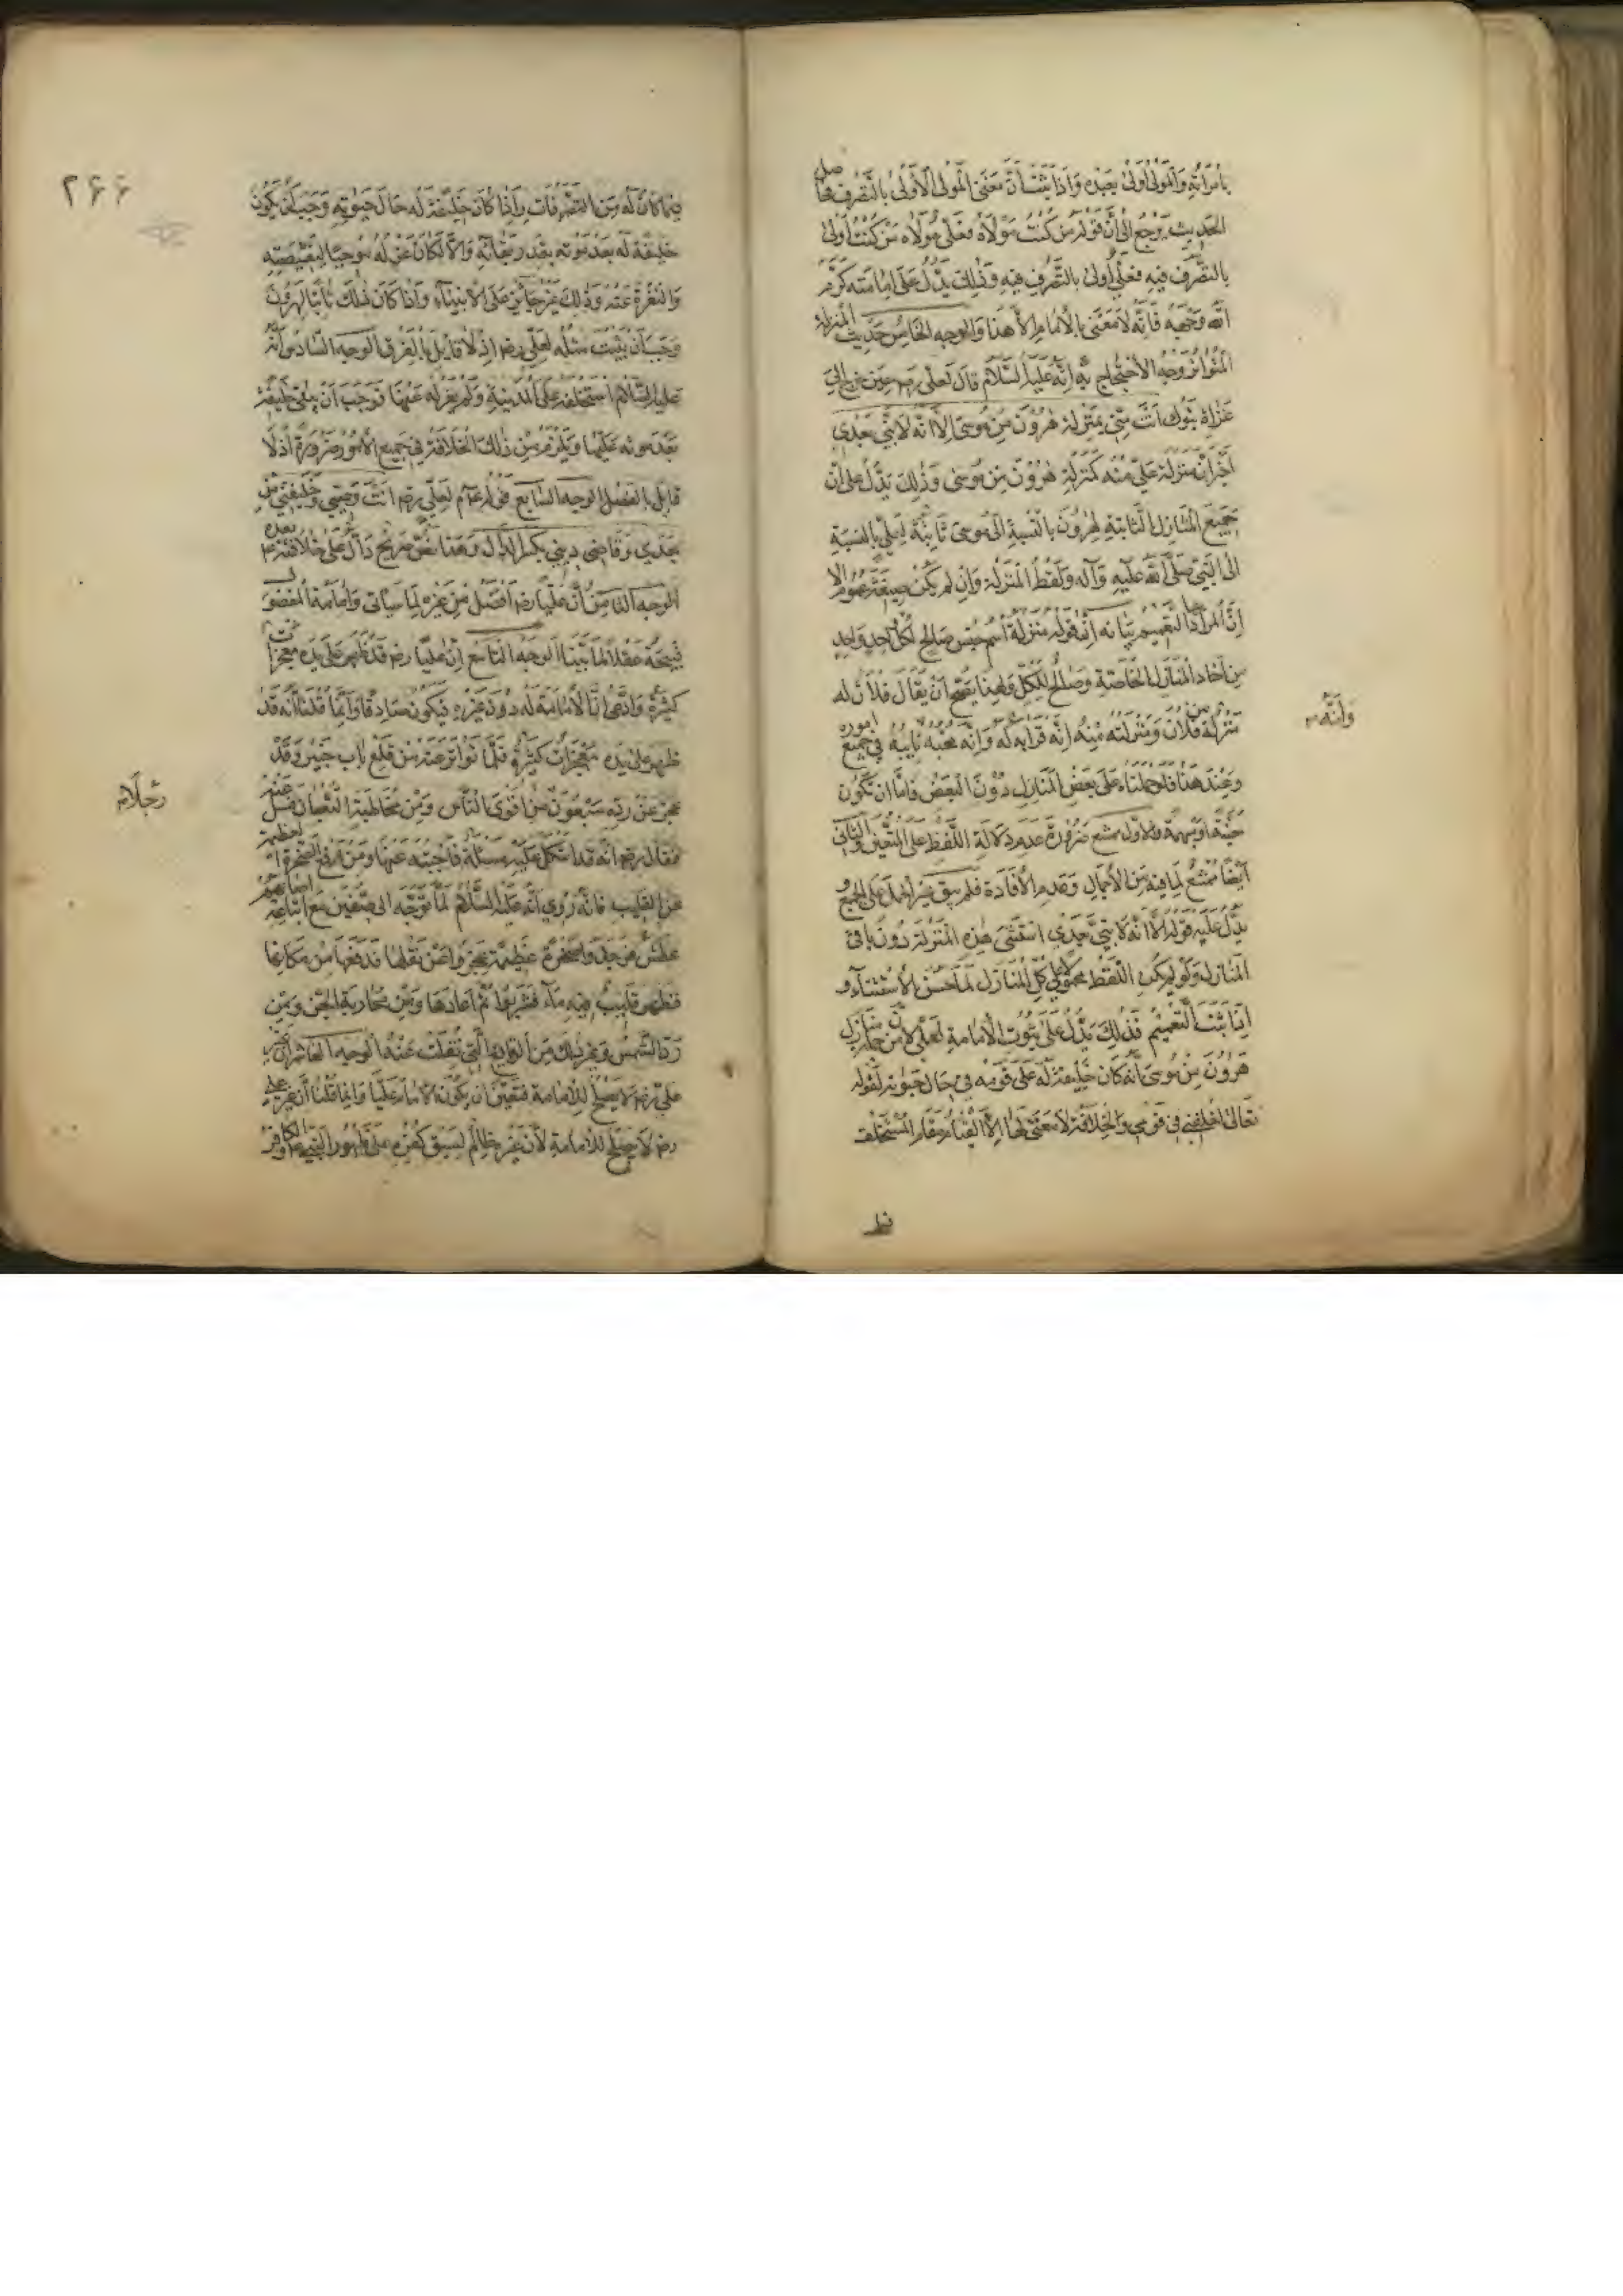 بامراته والمولى اولى بعبده واذا ثبت ان معنى المولى الاولى بالتصرف فحاصل
الحديث يرجع الى ان قوله من كنت مولاه فعلي مولاه من كنت اولى
بالتصرف فيه فعلي اولى بالتصرف فيه وذلك يدل على امامته كرم
الله وجهه فانه لا معنى بالامام الا هذا والوجه الخامس حديث المنزلة
المتواتر وجه الاحتجاج به انه عليه السلام قال لعلي رضه حين خرج الى
غزاة تبوك انت مني بمنزلة هرون من موسى الا انه لا نبي بعدى
اخبر ان منزلة علي منه كمنزلة هرون من موسى وذلك يدل على ان
جميع المنازل الثابتة لهرون بالنسبة الى موسى ثابتة لعلي بالنسبة
الى النبي صلى الله عليه وآله ولفظ المنزلة وان لم يكن صيغة عموم الا
ان المراد بها التعميم بيانه ان قوله منزلة اسم جنس صالح لكل احد واحد
من آحاد المنازل الخاصة وصالح للكل ولهذا يصح ان يقال فلان له
منزلة من فلان ومنزلته منه انه قرابه له وانه محبه نايبه في جميع اموره
وانه
وعند هذا فلو حملناه على بعض المنازل دون البعض فاما ان تكون
معينة او مبهمة والاول ممتنع ضرورة عدم دلالة اللفظ على المتعين والثاني
ايضا ممتنع لما فيه من الاجمال وعدم الافادة فلم يبق غير الحمل على الجميع و
يدل عليه قوله الا انه لا نبي بعدي استثنى هذه المنزلة دون باقي
المنازل ولو لم يكن اللفظ محمولا على كل المنازل لما حسن الاستثناء و
اذا ثبت التعميم فذلك يدل على ثبوت الامامة لعلي لان من جملة منازل
هرون من موسى انه كان خليفة له على قومه في حال حيوته لقوله
تعالى اخلفني في قومي والخلافة لا معنى لها الا القيام مقام المستخلف
فيما
٢۶۶
فيما كان له من التصرفات واذا كان خليفة له حال حيوته وجب ان يكون
خليفة له بعد موته بتقدير بقائه والا لكان عزله موجبا لنقيصته
والنفرة عنه وذلك غير جائز على الانبياء واذا كان ذلك ثابتا لهرون
وجب ان يثبت مثله لعلي رضه اذ لا قايل بالفرق الوجه السادس انه
عليه السلام استخلفه على المدينة ولم يعزله عنها فوجب ان يبقى خليفة
بعد موته عليها ويلزم من ذلك الخلافة في جميع الامور ضرورة اذ لا
قايل بالفصل الوجه السابع قوله عم لعلي رضه انت وصيي وخليفتي من
بعدي وقاضي ديني بكسر الدال وهذا نص صريح دال على خلافته بعده
الوجه الثامن ان عليا رضه افضل من غيره لما سياتي وامامة المفضول
قبيحة عقلا لما بينا الوجه التاسع ان عليا رضه قد ظهر على يده معجزات
كثيرة وادعى ان الامامة له دون غيره فيكون صادقا وانما قلنا انه قد
ظهر على يده معجزات كثيرة فلما تواتر عنه من قلع باب خيبر وقد
عجز عن رده سبعون من اقوى الناس ومن مخاطبة الثعبان فسئل عنه
رجلا
فقال رضه انه قد اشكل عليه مسئلة فاجبته عنها ومن رفع الصخرة العظيمة
عن القليب فانه روي انه عليه السلام لما توجه الى صفين مع اتباعه اصابهم
عطش فوجدوا صخرة عظيمة عجزوا عن نقلها فدفعها من مكانها
فظهر قليب فيه ماء فشربوا ثم اعادها ومن محاربة الجن ومن
رد الشمس وغير ذلك من الوقايع التي نقلت عنه الوجه العاشر ان غير
علي رضه لا يصلح للامامة فتعين ان يكون الامام عليا وانما قلنا ان غير علي
رضه لا يصلح للامامة لان غيره ظالم لسبق كفره على ظهور النبي عم والكافر